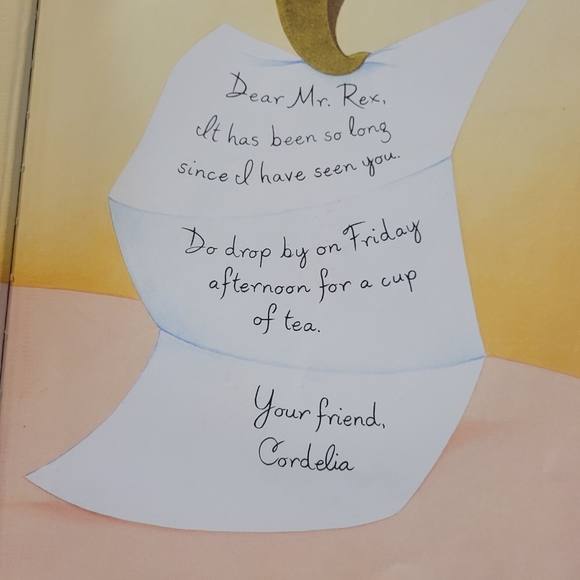 Dear Mr. Rex,
It has been so long
since I have seen you.
Do drop by on Friday
afternoon for a cup
of tea.
Your friend,
Cordelia